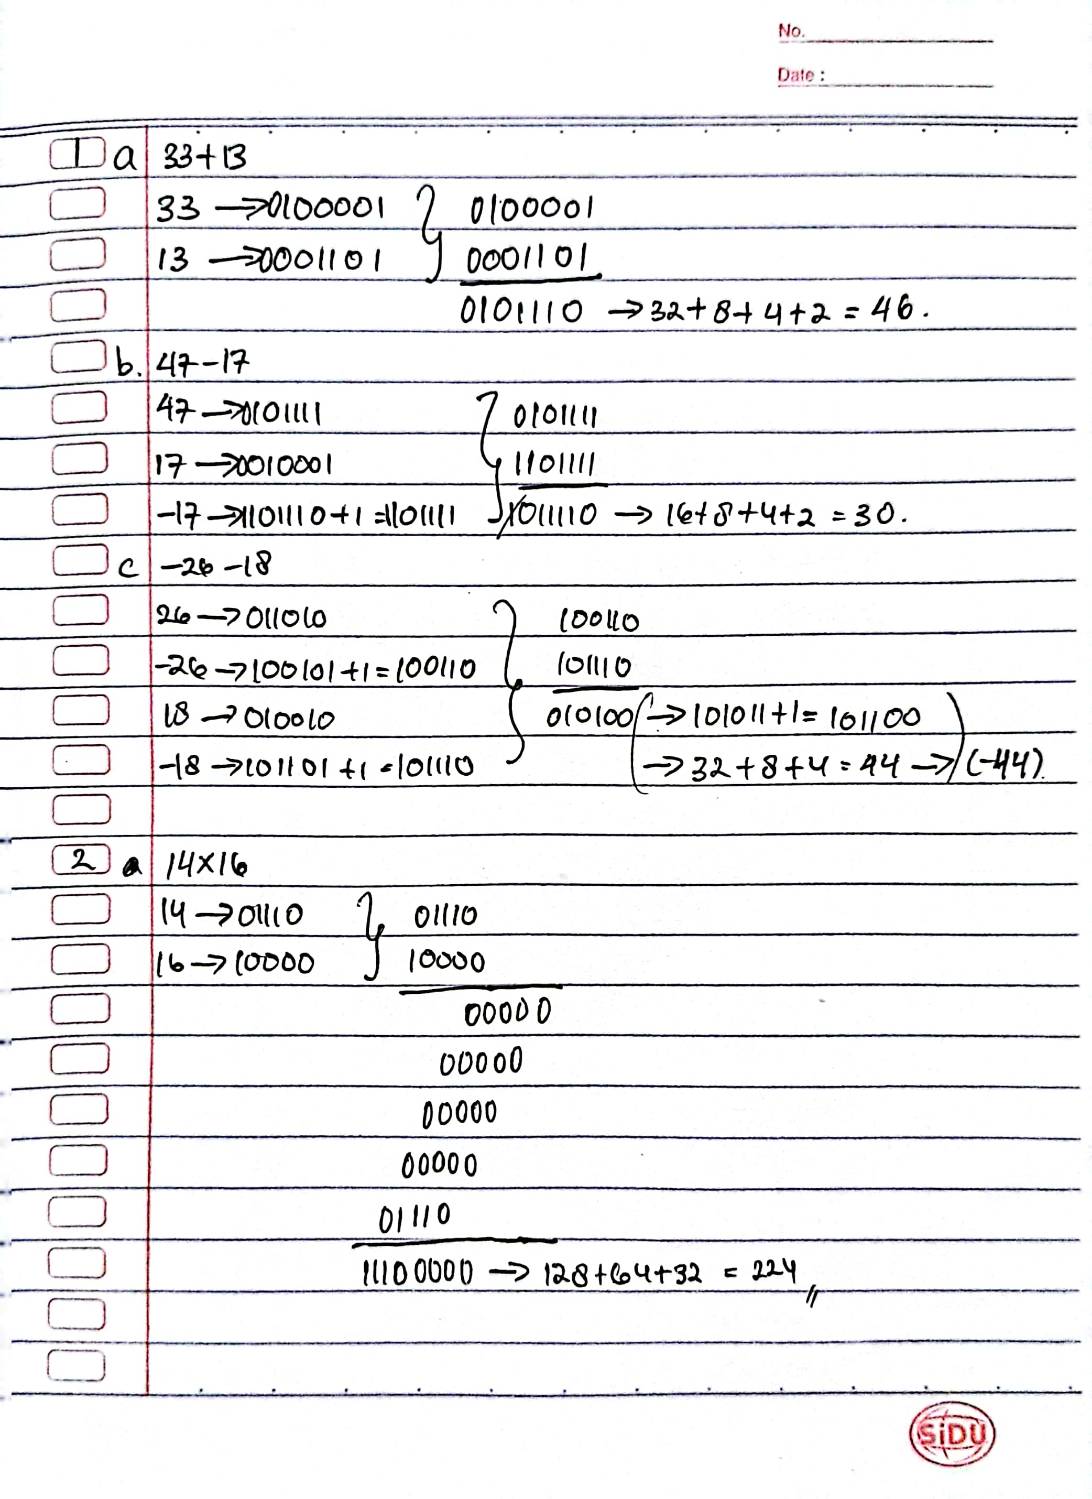 No.
Date :
1 a 33+13
33 →0100001 0100001
13 →0001101 0001101
0101110 → 32+8+4+2 = 46.
b. 47-17
47→0101111 0101111
17→0010001 1101111
-17→1101110+1=1101111 1011110 → 16+8+4+2 = 30.
c -26-18
26→011010 100110
-26→100101+1=100110 101110
18→010010 010100 →101011+1= 101100
-18→101101+1=101110 → 32+8+4=44→ (-44).
2 a 14×16
14→01110 01110
16→10000 10000
00000
00000
00000
00000
01110
11100000 → 128+64+32 = 224
SiDU